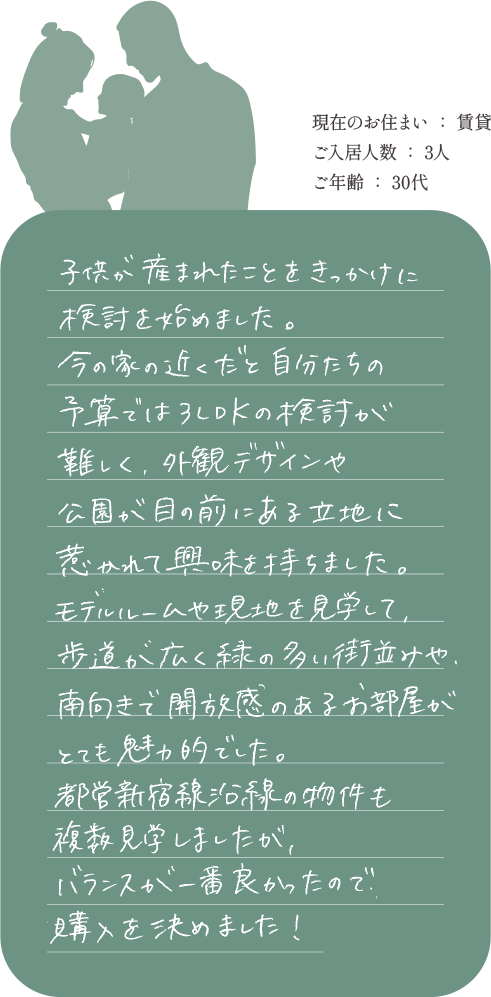 現在のお住まい ： 賃貸
ご入居人数 ： 3人
ご年齢 ： 30代
子供が産まれたことをきっかけに
検討を始めました。
今の家の近くだと自分たちの
予算では3LDKの検討が
難しく、外観デザインや
公園が目の前にある立地に
惹かれて興味を持ちました。
モデルルームや現地を見学して、
歩道が広く緑の多い街並みや、
南向きで開放感のあるお部屋が
とても魅力的でした。
都営新宿線沿線の物件も
複数見学しましたが、
バランスが一番良かったので、
購入を決めました！